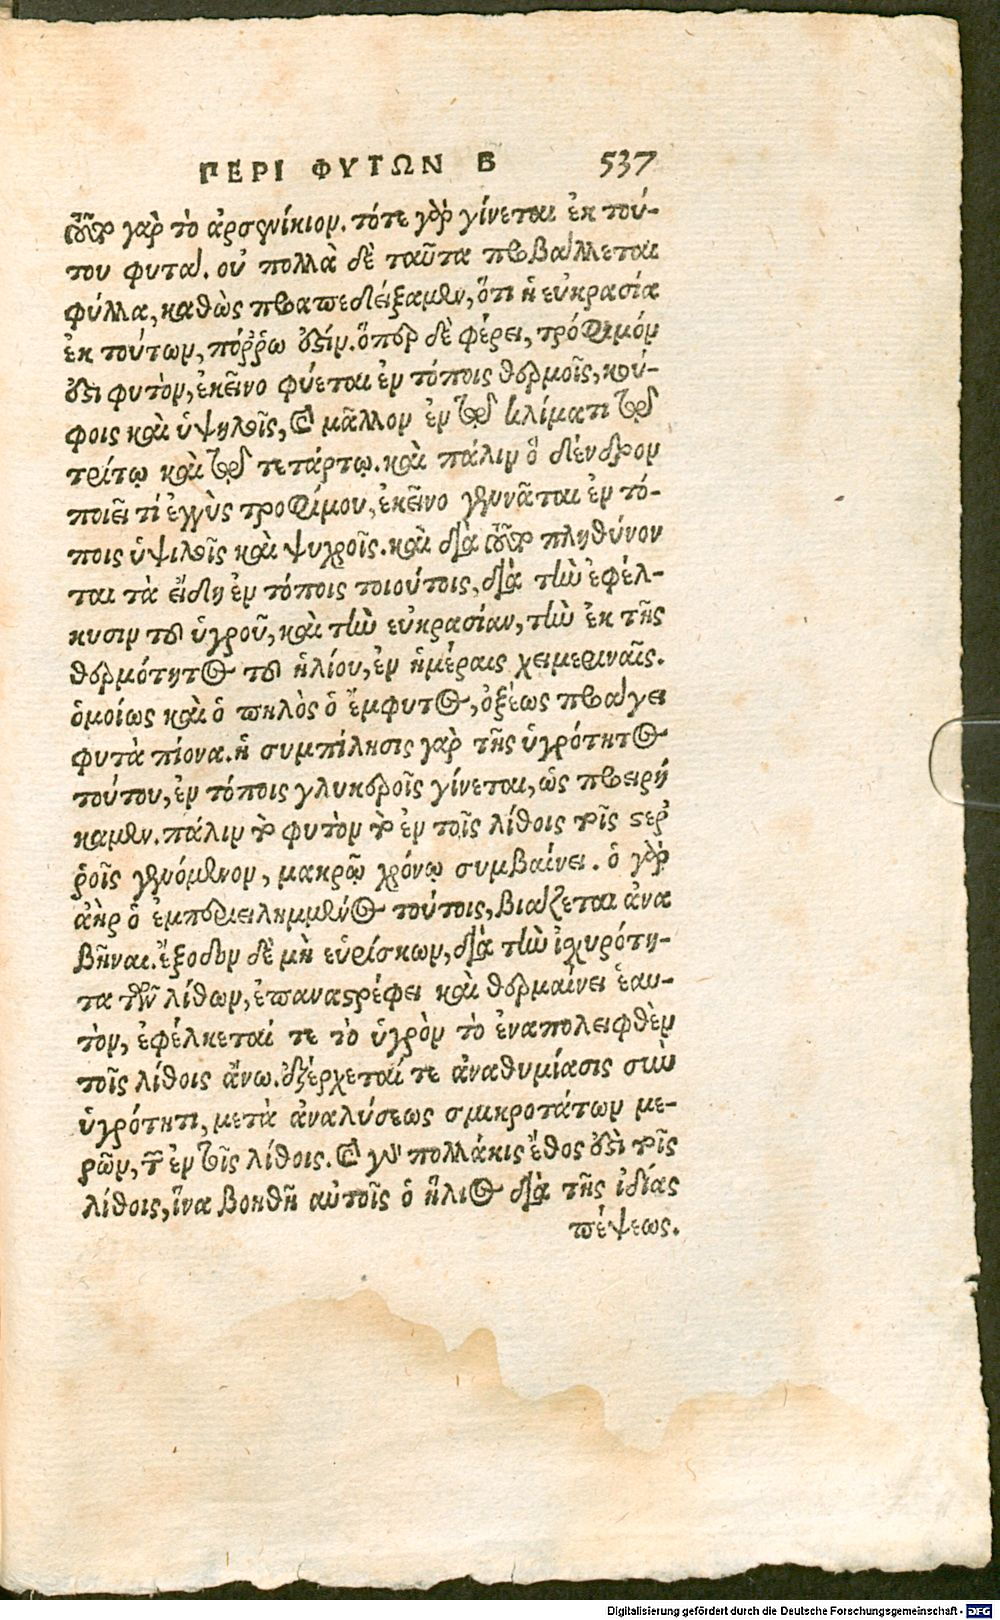 ΠΕΡΙ ΦΥΤΩΝ Β 537
γὰρ τὸ ἀρσενίκιον. τότε γὸρ γίνεται ἐκ τού-
του φυτά. οὐ πολλὰ δὲ ταῦτα προβάλλεται
φύλλα, καθὼς προαπεδείξαμεν, ὅτι ἡ εὐκρασία
ἐκ τούτων, πόῤῥω ἐστίν. ὅπερ δὲ φέρει, τρόφιμόν
ἐστι φυτὸν, ἐκεῖνο φύεται ἐν τόποις θερμοῖς, κού-
φοις καὶ ὑψηλοῖς, καὶ μᾶλλον ἐν τῷ κλίματι τῷ
τρίτῳ καὶ τῷ τετάρτῳ. καὶ πάλιν ὃ δένδρον
ποιεῖ τί ἐγγὺς τροφίμου, ἐκεῖνο γεννᾶται ἐν τό-
ποις ὑψιλοῖς καὶ ψυχροῖς. καὶ διὰ τοῦτο πληθύνον
ται τὰ εἴδη ἐν τόποις τοιούτοις, διὰ τὴν ἐφέλ-
κυσιν τοῦ ὑγροῦ, καὶ τὴν εὐκρασίαν, τὴν ἐκ τῆς
θερμότητος τοῦ ἡλίου, ἐν ἡμέραις χειμεριναῖς.
ὁμοίως καὶ ὁ πηλὸς ὁ ἔμφυτος, ὀξέως προάγει
φυτὰ πίονα. ἡ συμπίλησις γὰρ τῆς ὑγρότητος
τούτου, ἐν τόποις γλυκεροῖς γίνεται, ὡς προειρή
καμεν. πάλιν τὸ φυτὸν τὸ ἐν τοῖς λίθοις τοῖς στερ
ῥοῖς γενόμενον, μακρῷ χρόνῳ συμβαίνει. ὁ γὸρ
ἀὴρ ὁ ἐμπεριειλημμένος τούτοις, βιάζεται ἀνα
βῆναι. ἔξοδον δὲ μὴ εὑρίσκων, διὰ τὴν ἰχυρότη-
τα τῶν λίθων, ἐπαναστρέφει καὶ θερμαίνει ἑαυ-
τὸν, ἐφέλκεταί τε τὸ ὑγρὸν τὸ ἐναπολειφθὲν
τοῖς λίθοις ἄνω. ἐξέρχεταί τε ἀναθυμίασις σὺν
ὑγρότητι, μετὰ ἀναλύσεως σμικροτάτων με-
ρῶν, τῶν ἐν τοῖς λίθοις. καὶ πολλάκις ἔθος ἐστὶ τοῖς
λίθοις, ἵνα βοηθῇ αὐτοῖς ὁ ἥλιος διὰ τῆς ἰδίας
πέψεως.
Digitalisierung gefördert durch die Deutsche Forschungsgemeinschaft - DFG